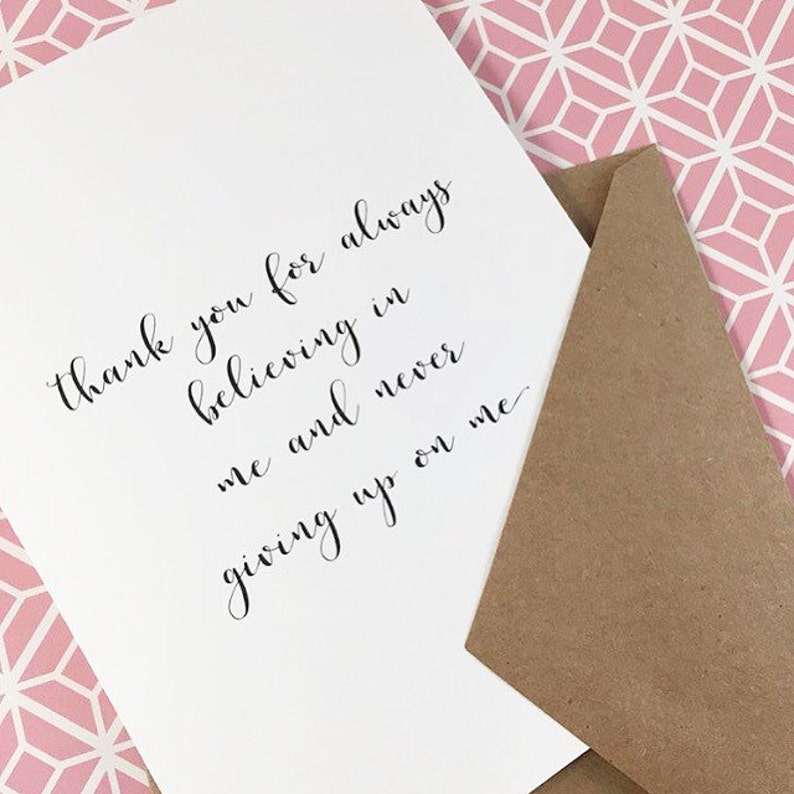 thank you for always
believing in
me and never
giving up on me